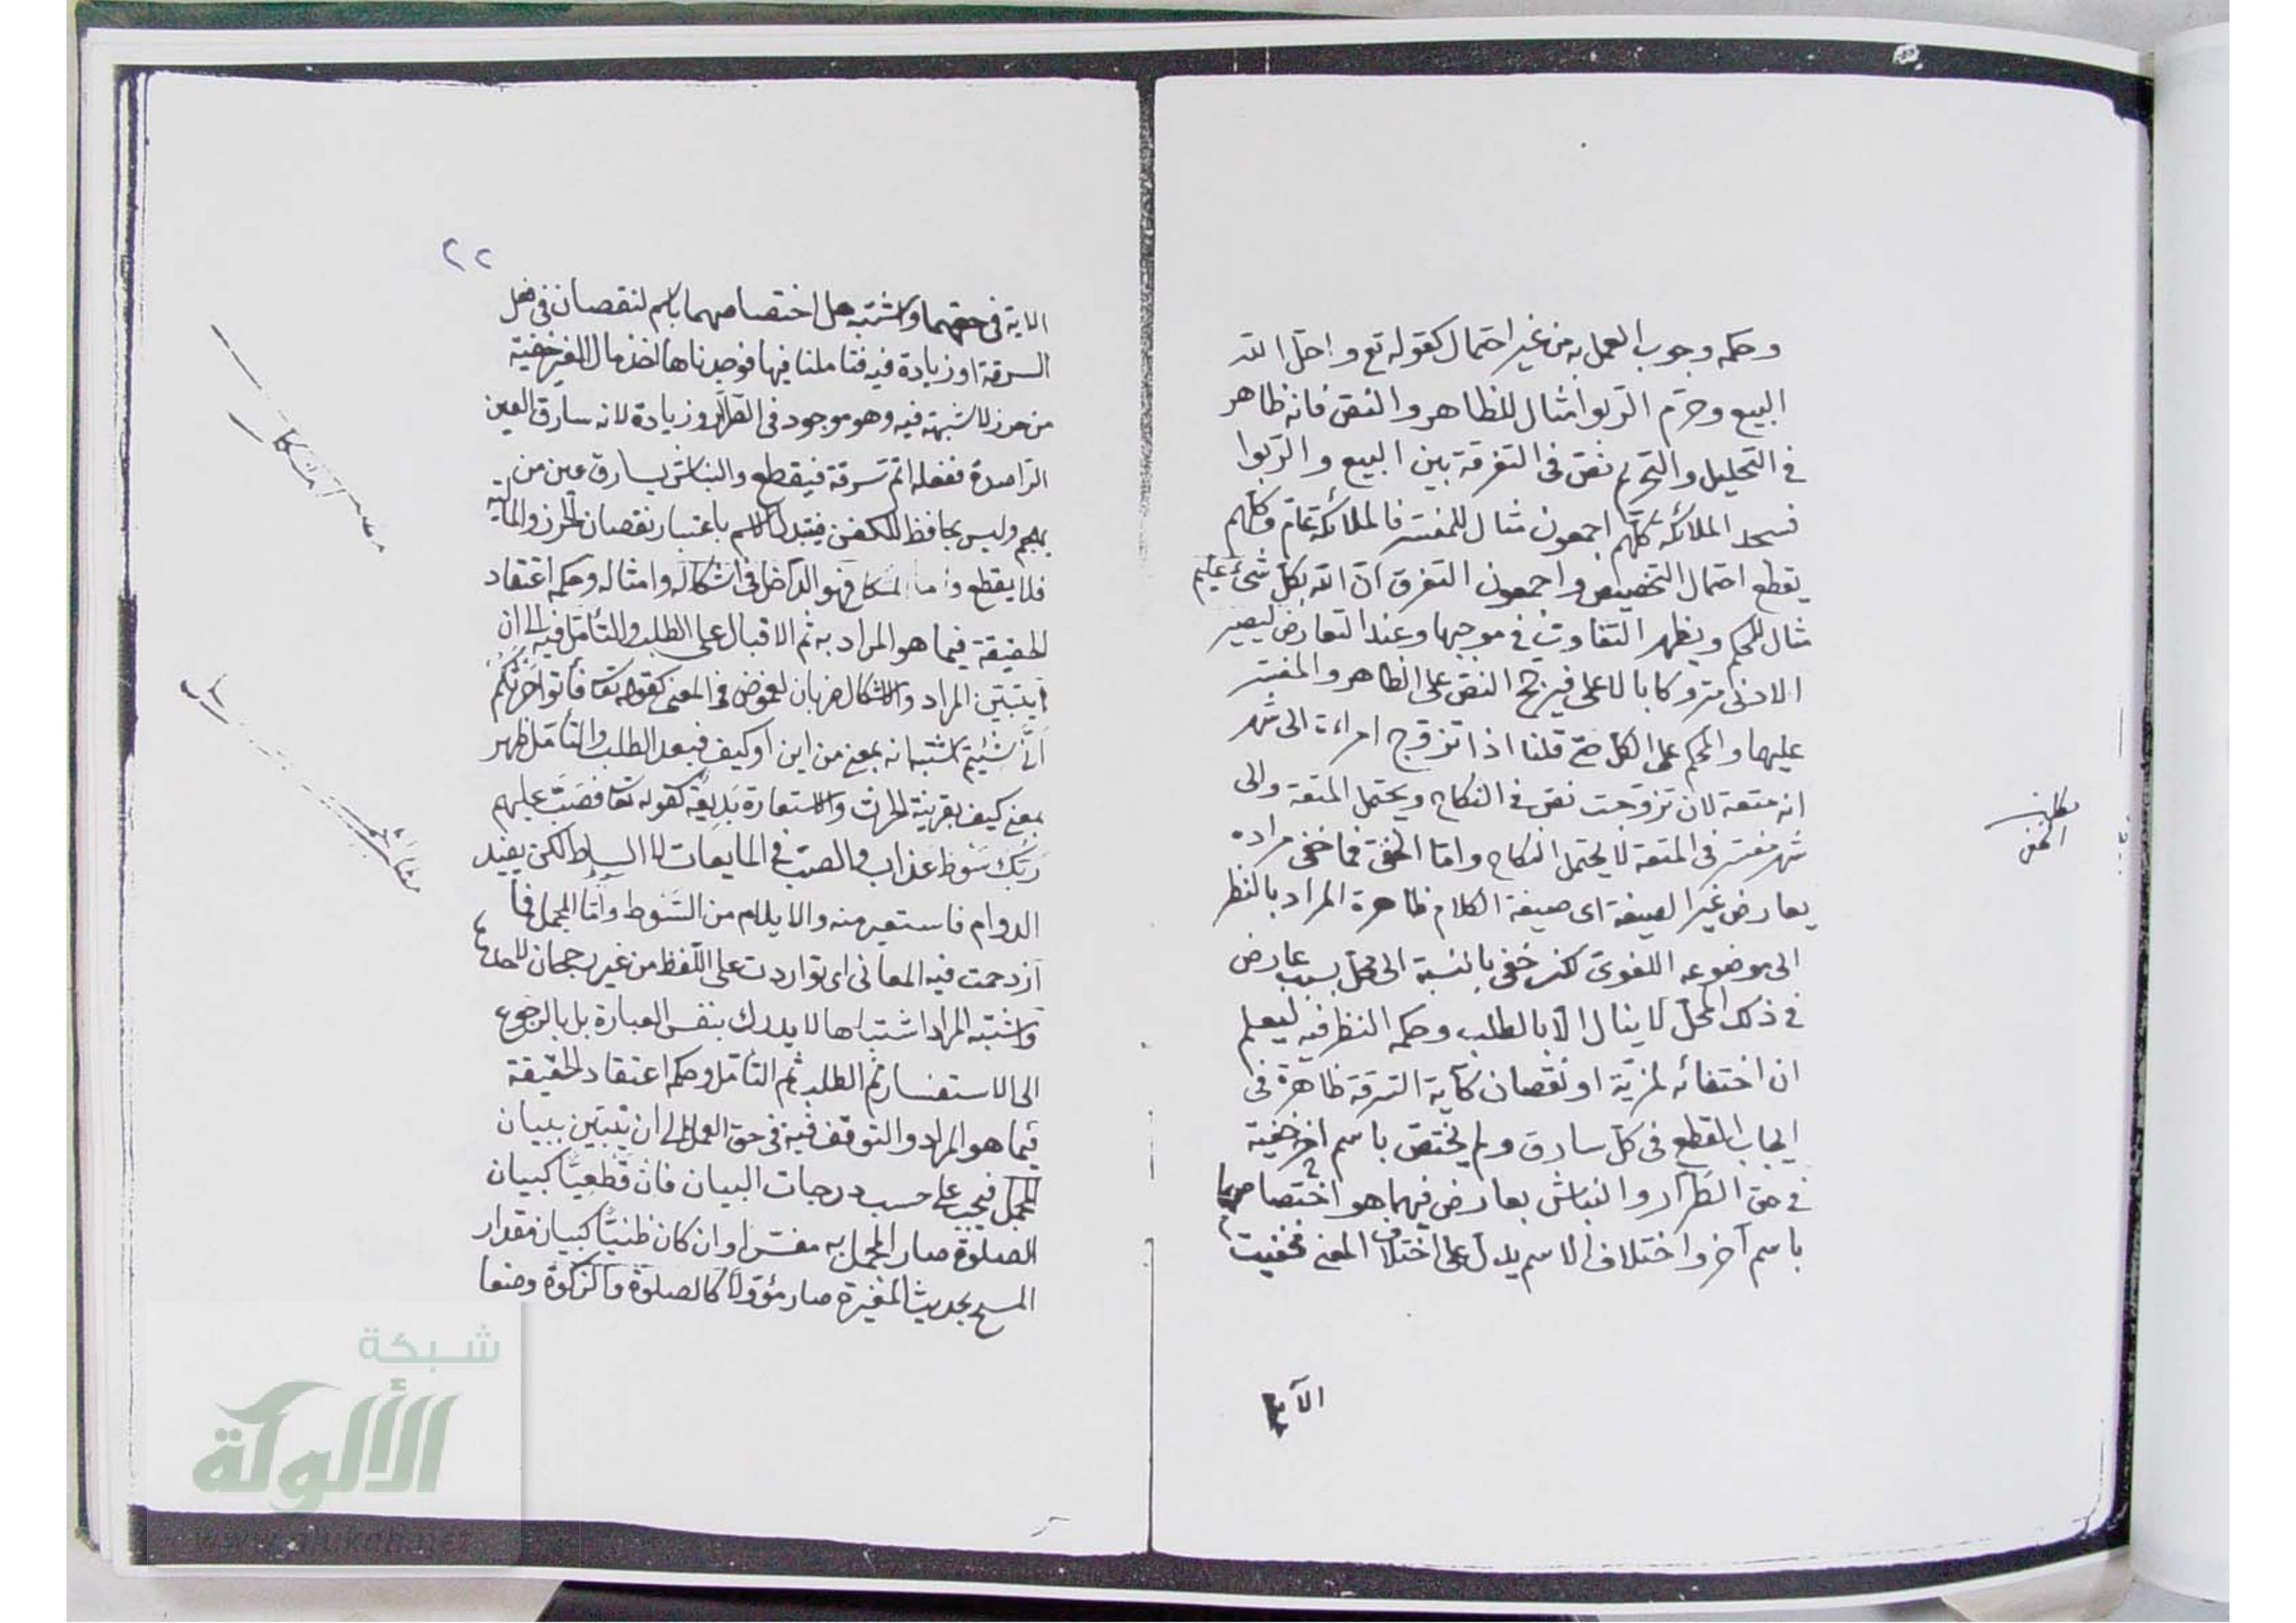 وحكمه وجوب العمل به من غير احتمال كقوله تع واحل الله
البيع وحرّم الربوا مثال للظاهر والنصّ فانه ظاهر
في التحليل والتحريم نصّ في التفرقة بين البيع والربوا
فسجد الملائكة كلّهم اجمعون مثال للمفسّر فالملائكة عامّ وكلهم
يقطع احتمال التخصيص واجمعون التفرق انّ الله بكلّ شئ عليم
مثال للمحكم ويظهر التفاوت في موجبها وعند التعارض ليصير
الادنى متروكا بالاعلى فيرجّح النصّ على الظاهر والمفسّر
عليهما والمحكم على الكل حتى قلنا اذا تزوّج امراءة الى شهر
انه متعة لان تزوّجت نصّ في النكاح ويحتمل المتعة والى
شهر مفسّر في المتعة لا يحتمل النكاح وامّا الخفىّ فما خفى مراده
بعارض غير الصيغة اى صيغة الكلام ظاهرة المراد بالنظر
الى موضوعه اللغوىّ لكن خفى بالنسبة الى محلّ بسبب عارض
في ذلك المحلّ لا ينال الّا بالطلب وحكمه النظر فيه ليعلم
ان اختفائه لمزيّة او نقصان كآية السّرقة ظاهرة في
ايجاب القطع في كلّ سارق ولم يختصّ باسم آخر خفية
في حق الطّرّار والنبّاش بعارض فيهما هو اختصاصهما
باسم آخر واختلاف الاسم يدلّ على اختلاف المعنى فخفيت
الآية
مطلب
الخفى
٢٢
الاية في حقهما واشتبه هل اختصاصهما باسم لنقصان في فعل
السرقة او زيادة فيه فتاملنا فيها فوجدناها اخذ مال الغير خفية
من حرز لا شبهة فيه وهو موجود في الطرّار وزيادة لانه سارق العين
الراصدة ففعله اتمّ سرقة فيقطع والنباش يسارق عين من
يهجم وليس بحافظ للكفن فيتبدل الاسم باعتبار نقصان الحرز والمالية
فلا يقطع واما المشكل فهو الداخل في اشكاله وامثاله وحكمه اعتقاد
الحقيقة فيما هو المراد به ثم الاقبال على الطلب والتأمّل فيه الى ان
يتبيّن المراد والاشكال ضربان لغموض في المعنى كقوله تعا فأتوا حرثكم
انّى شئتم اشتبه انه بمعنى من اين او كيف فبعد الطلب والتأمّل ظهر
بمعنى كيف بقرينة الحرث والاستعارة بديعة كقوله تعا فصبّ عليهم
ربّك سوط عذاب والصبّ في المايعات لا السياط لكن يفيد
الدوام فاستعير منه والايلام من السّوط وامّا المجمل فما
ازدحمت فيه المعانى اى تواردت على اللفظ من غير رجحان لاحدها
واشتبه المراد اشتباها لا يدرك بنفس العبارة بل بالرجوع
الى الاستفسار ثم الطلب ثم التأمّل وحكمه اعتقاد الحقيقة
فيما هو المراد والتوقّف فيه في حق العمل الى ان يتبيّن ببيان
المجمل فيجب على حسب درجات البيان فان قطعيّا كبيان
الصلوة صار المجمل به مفسّرا وان كان ظنيّا كبيان مقدار
المسح بحديث المغيرة صار مؤوّلا كالصلوة والزكوة وضعا
شبكة
الألوكة
www.alukah.net